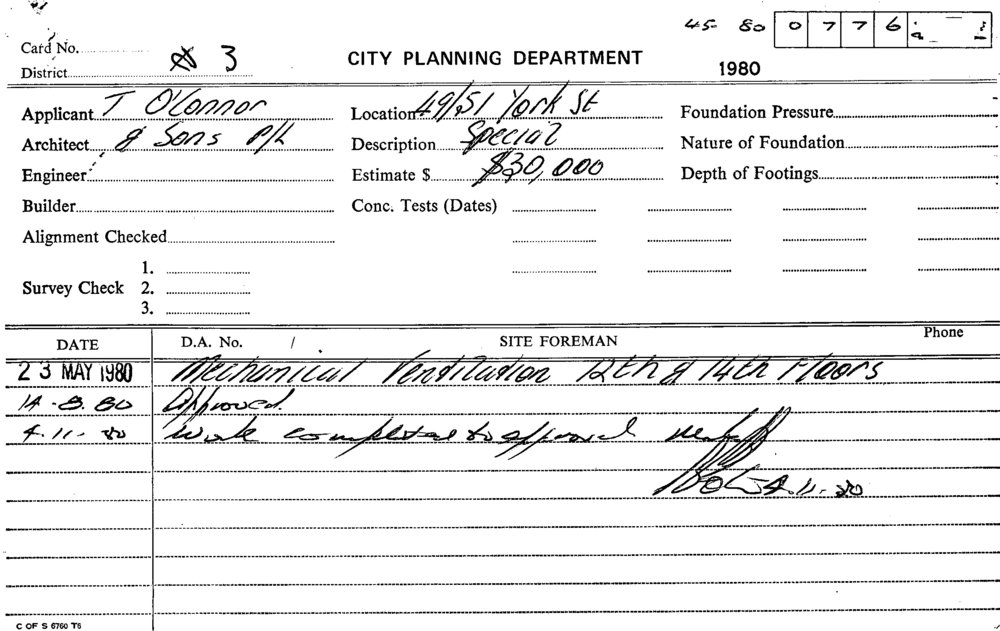 45- 80 0 7 7 6
Card No.
District 3
CITY PLANNING DEPARTMENT
1980
Applicant T O'Connor
Location 49/51 York St
Foundation Pressure
Architect & Sons P/L
Description Special
Nature of Foundation
Engineer
Estimate $ $30,000
Depth of Footings
Builder
Conc. Tests (Dates)
Alignment Checked
1.
Survey Check 2.
3.
DATE D.A. No. / SITE FOREMAN Phone
23 MAY 1980 Mechanical Ventilation 12th & 14th Floors
14-8.80 Approved.
4.11.80 Work completed to approval
4.11.80
C OF S 6760 T6